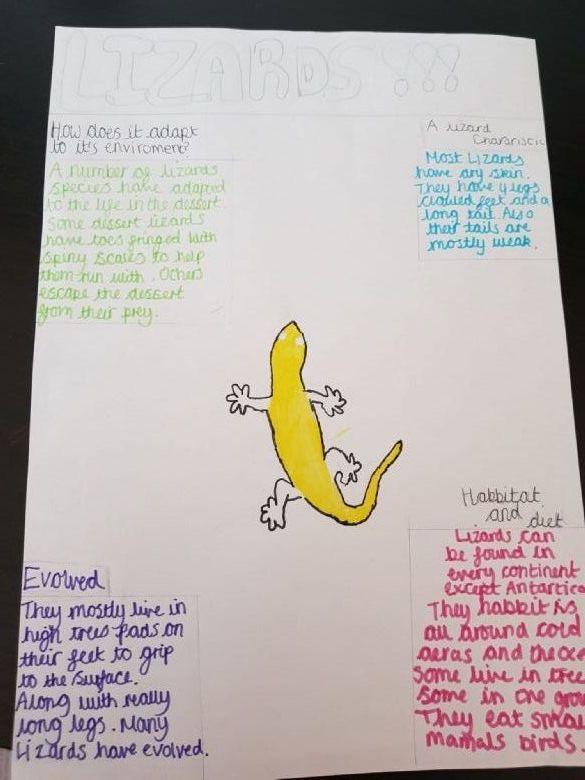 LIZARDS!!!
How does it adapt
to it's enviroment?
A number of lizards
species have adapted
to the life in the dessert.
Some dissert lizards
have toes fringed with
spiny scales to help
them run with. Others
escape the dessert
from their prey.
A lizard
Most Lizards
have dry skin.
They have 4 legs
clawed feet and a
long tail. Also
their tails are
mostly weak.
Evolved
They mostly live in
high trees pads on
their feet to grip
to the surface.
Along with really
long legs. Many
Lizards have evolved.
Habbitat
and diet
Lizards can
be found in
every continent
except Antartica
They habbit is
all around cold
aeras and the
Some live in tree
Some in the
They eat small
mamals birds.